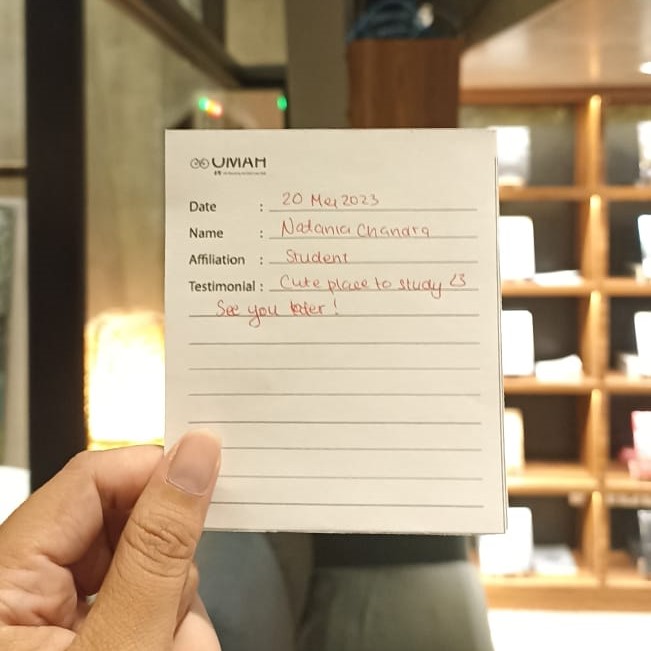 UMAH
Date : 20 Mei 2023
Name : Natania Chandra
Affiliation : Student
Testimonial : Cute place to study <3
See you later !